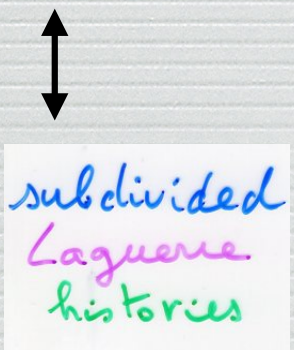 subdivided
Laguerre
histories